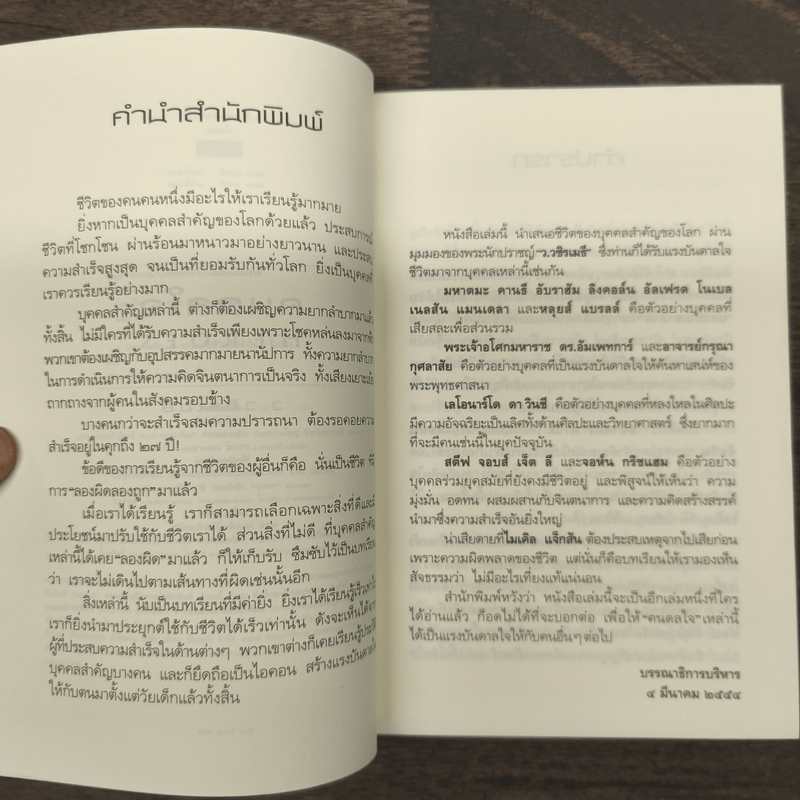 คำนำสำนักพิมพ์
ชีวิตของคนคนหนึ่งมีอะไรให้เราเรียนรู้มากมาย
ยิ่งหากเป็นบุคคลสำคัญของโลกด้วยแล้ว ประสบการณ์
ชีวิตที่โชกโชน ผ่านร้อนมาหนาวมาอย่างยาวนาน และประสบ
ความสำเร็จสูงสุด จนเป็นที่ยอมรับกันทั่วโลก ยิ่งเป็นบุคคลที่
เราควรเรียนรู้อย่างมาก
บุคคลสำคัญเหล่านี้ ต่างก็ต้องเผชิญความยากลำบากมาแล้ว
ทั้งสิ้น ไม่มีใครที่ได้รับความสำเร็จเพียงเพราะโชคหล่นลงมาจากฟ้า
พวกเขาต้องเผชิญกับอุปสรรคมากมายนานัปการ ทั้งความยากลำบาก
ในการดำเนินการให้ความคิดจินตนาการเป็นจริง ทั้งเสียงเยาะเย้ย
ถากถางจากผู้คนในสังคมรอบข้าง
บางคนกว่าจะสำเร็จสมความปรารถนา ต้องรอคอยความ
สำเร็จอยู่ในคุกถึง ๒๗ ปี!
ข้อดีของการเรียนรู้จากชีวิตของผู้อื่นก็คือ นั่นเป็นชีวิต ที่มี
การ“ลองผิดลองถูก”มาแล้ว
เมื่อเราได้เรียนรู้ เราก็สามารถเลือกเฉพาะสิ่งที่ดีและมี
ประโยชน์มาปรับใช้กับชีวิตเราได้ ส่วนสิ่งที่ไม่ดี ที่บุคคลสำคัญ
เหล่านี้ได้เคย“ลองผิด”มาแล้ว ก็ให้เก็บรับ ซึมซับไว้เป็นบทเรียน
ว่า เราจะไม่เดินไปตามเส้นทางที่ผิดเช่นนั้นอีก
สิ่งเหล่านี้ นับเป็นบทเรียนที่มีค่ายิ่ง ยิ่งเราได้เรียนรู้เร็วเท่าใด
เราก็ยิ่งนำมาประยุกต์ใช้กับชีวิตได้เร็วเท่านั้น ดังจะเห็นได้จาก
ผู้ที่ประสบความสำเร็จในด้านต่างๆ พวกเขาต่างก็เคยเรียนรู้ประวัติ
บุคคลสำคัญบางคน และก็ยึดถือเป็นไอคอน สร้างแรงบันดาลใจ
ให้กับตนมาตั้งแต่วัยเด็กแล้วทั้งสิ้น
หนังสือเล่มนี้ นำเสนอชีวิตของบุคคลสำคัญของโลก ผ่าน
มุมมองของพระนักปราชญ์“ว.วชิรเมธี” ซึ่งท่านก็ได้รับแรงบันดาลใจ
ชีวิตมาจากบุคคลเหล่านี้เช่นกัน
มหาตมะ คานธี อับราฮัม ลิงคอล์น อัลเฟรด โนเบล
เนลสัน แมนเดลา และหลุยส์ แบรลล์ คือตัวอย่างบุคคลที่
เสียสละเพื่อส่วนรวม
พระเจ้าอโศกมหาราช ดร.อัมเพทการ์ และอาจารย์กรุณา
กุศลาสัย คือตัวอย่างบุคคลที่เป็นแรงบันดาลใจให้ค้นหาเสน่ห์ของ
พระพุทธศาสนา
เลโอนาร์โด ดา วินชี คือตัวอย่างบุคคลที่หลงใหลในศิลปะ
มีความอัจฉริยะเป็นเลิศทั้งด้านศิลปะและวิทยาศาสตร์ ซึ่งยากมาก
ที่จะมีคนเช่นนี้ในยุคปัจจุบัน
สตีฟ จอบส์ เจ็ต ลี และจอห์น กริชแฮม คือตัวอย่าง
บุคคลร่วมยุคสมัยที่ยังคงมีชีวิตอยู่ และพิสูจน์ให้เห็นว่า ความ
มุ่งมั่น อดทน ผสมผสานกับจินตนาการ และความคิดสร้างสรรค์
นำมาซึ่งความสำเร็จอันยิ่งใหญ่
น่าเสียดายที่ไมเคิล แจ็กสัน ต้องประสบเหตุจากไปเสียก่อน
เพราะความผิดพลาดของชีวิต แต่นั่นก็คือบทเรียนให้เรามองเห็น
สัจธรรมว่า ไม่มีอะไรเที่ยงแท้แน่นอน
สำนักพิมพ์หวังว่า หนังสือเล่มนี้จะเป็นอีกเล่มหนึ่งที่ใคร
ได้อ่านแล้ว ก็อดไม่ได้ที่จะบอกต่อ เพื่อให้“คนดลใจ”เหล่านี้
ได้เป็นแรงบันดาลใจให้กับคนอื่นๆต่อไป
บรรณาธิการบริหาร
๔ มีนาคม ๒๕๕๔